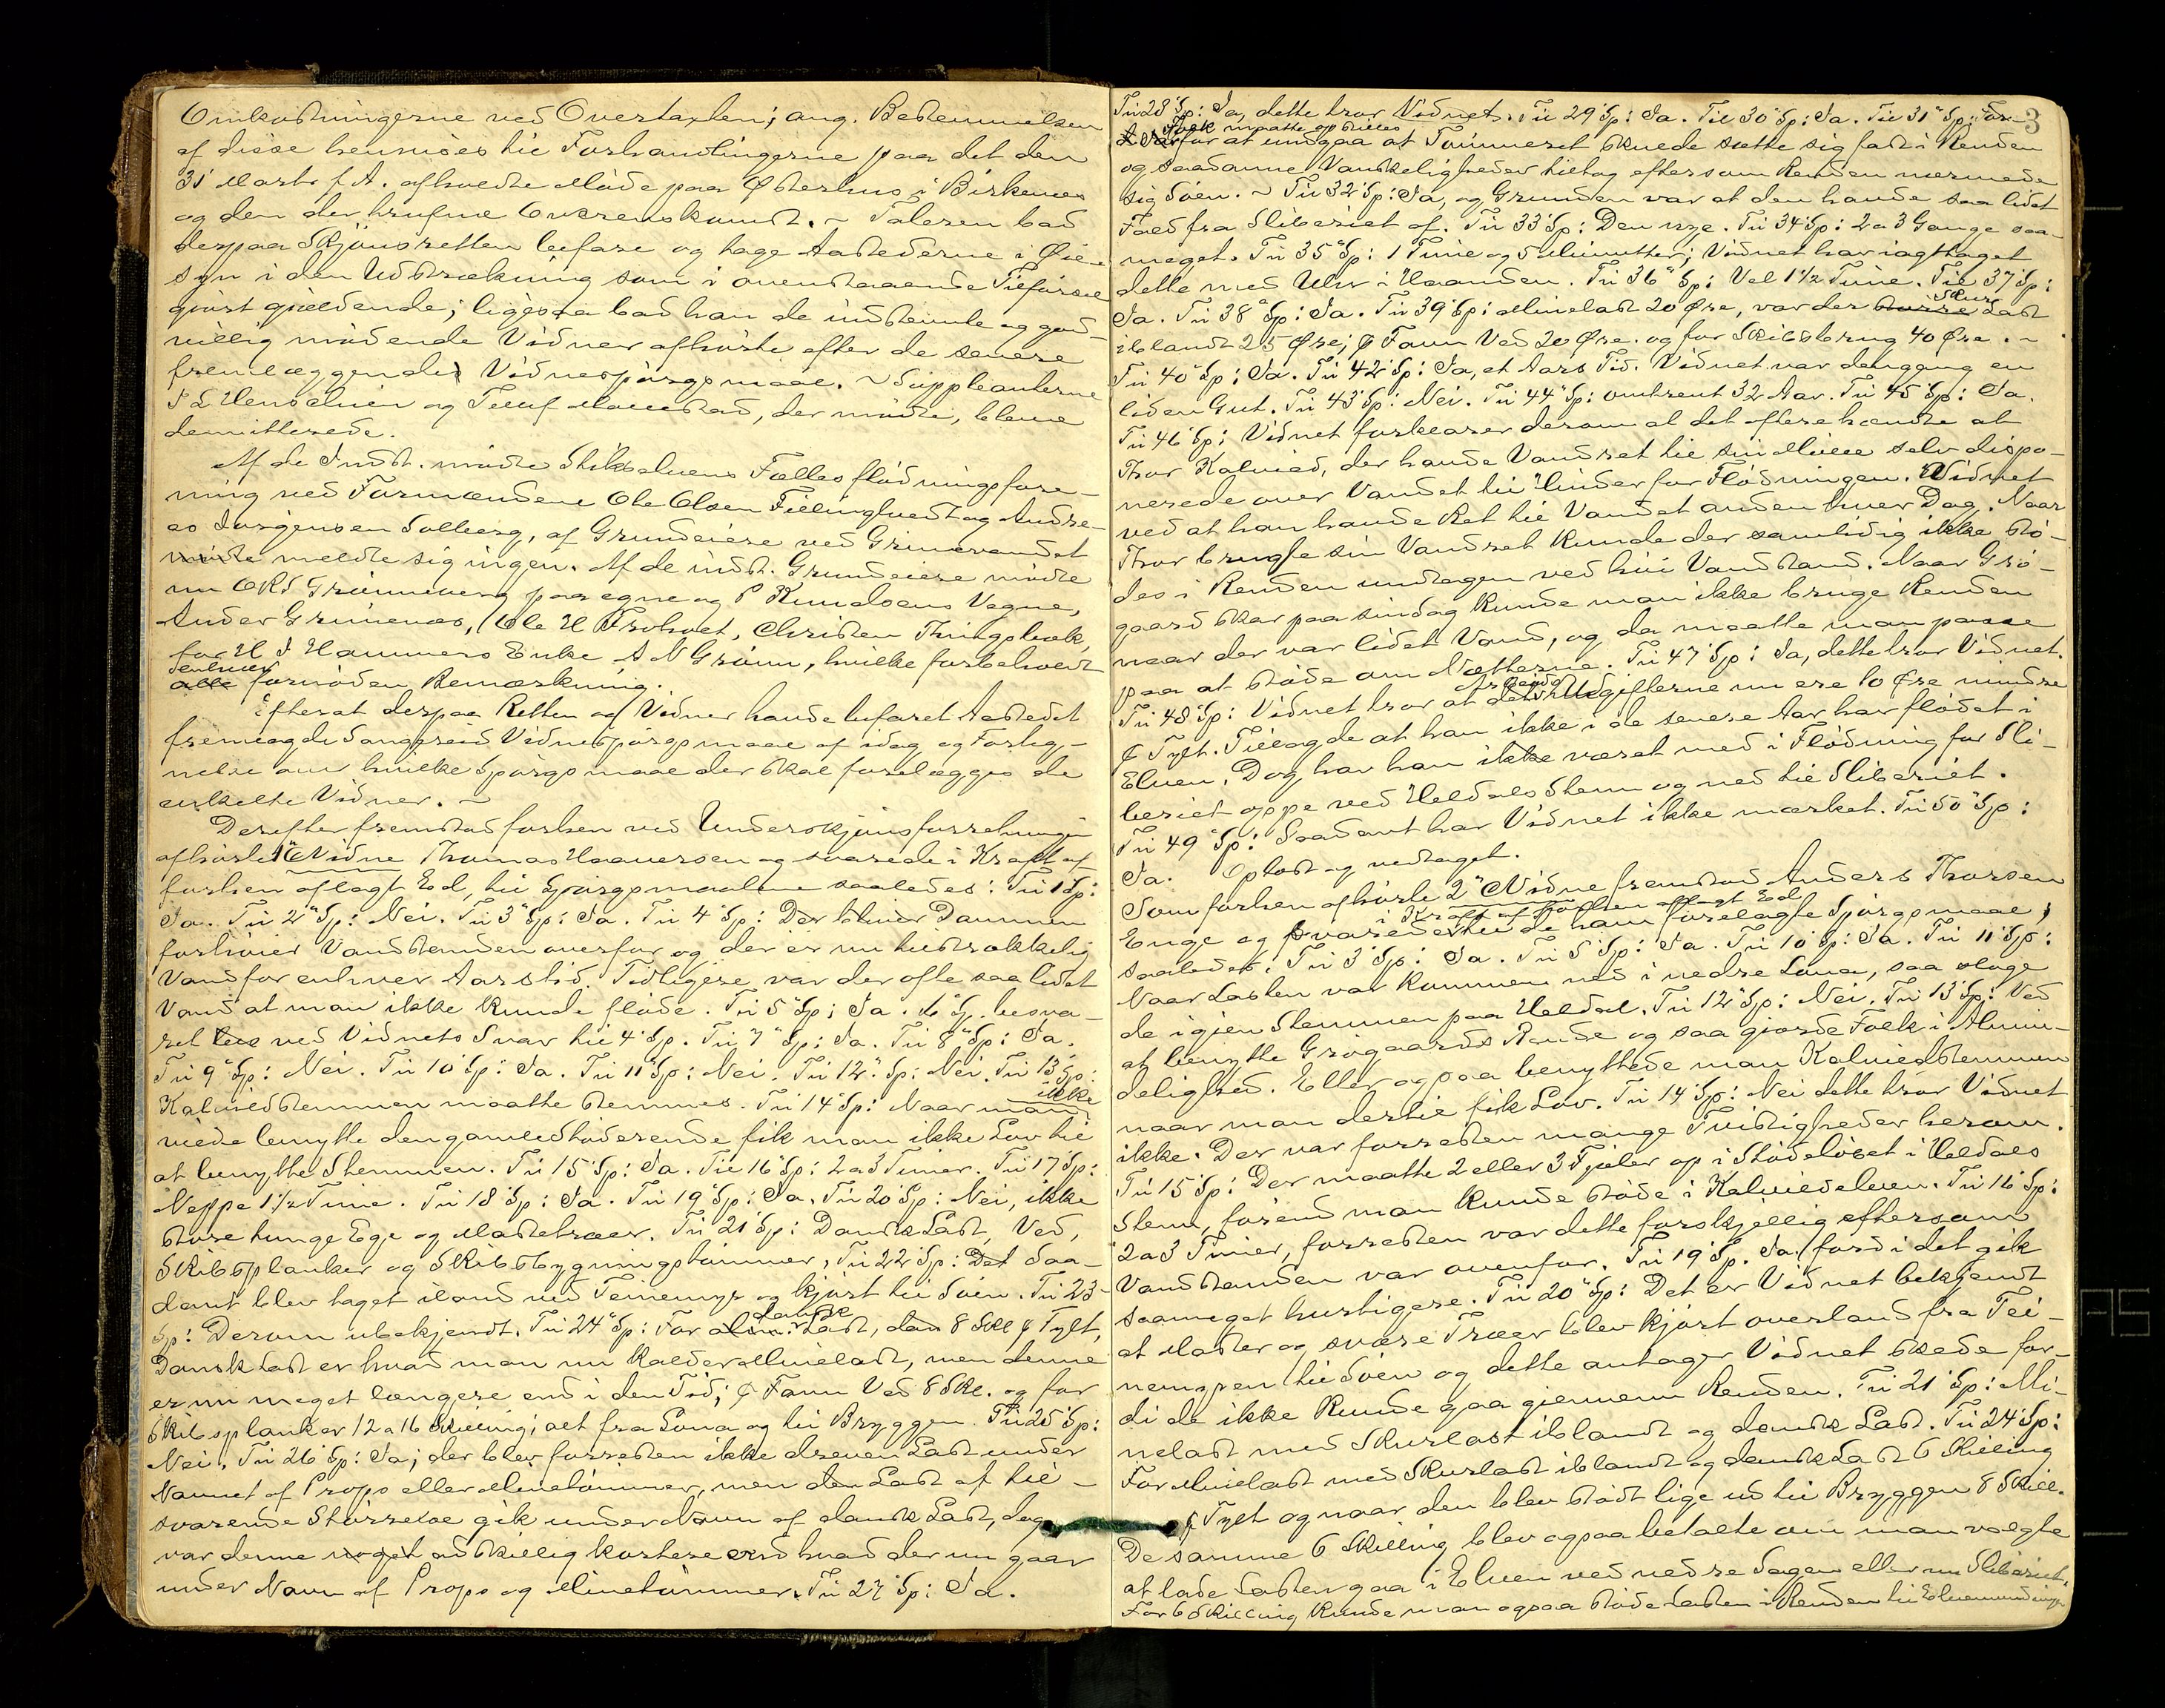 Omkostningerne ved Overtaxten; ang. Bestemmelsen
af disse henvises til Forhandlingerne paa det den
31 Marts f A. afholdte Møde paa Østerhus i Birkenes
og den der trufne Overenskomst. ~ Taleren bad
derpaa Skjønsretten befare og tage Aastederne i Øie-
syn i den Udstrækning som i ovenstaaende Tilførsel
gjort gjældende; ligesaa bad han de indstevnte og god-
villig mødende Vidner afhørte efter de senere
fremlæggendes Vidnespørgsmaal. ~ Suppleanterne
og Tellef, der mødte, bleve
demitterede.
Af de Indst. mødte Stikelvens Fællesflødningsfore-
ning ved Formændene Ole Olsen Fillingtvedt og Andre-
as Jørgensen Solberg, af Grundeiere ved Grimevandet
mødte meldte sig ingen. Af de indst. Grundeiere mødte
nu O K S Grønneberg paa egne og P Knudsens Vegne,
Anders Grimenes, Ole H Froholt, Christen Thingsbæk,
for H J Hammers Enke A N Grønn, hvilke forbeholdt
enhver
alle fornøden Bemærkning.
Efterat derpaa Retten og Vidner havde befaret Aastedet
fremlagde Vidnespørgsmaal af idag og Forteg-
nelse over hvilke Spørgsmaal der skal forelægges de
enkelte Vidner. ~
Derefter fremstod forhen ved Underskjønsforretningen
afhørte 1ste Vidne Thomas Haaversen og svarede i Kraft af
forhen aflagt Ed, til Spørgsmaalene saaledes: Til 1 Sp:
Ja. Til 2 Sp: Nei. Til 3 Sp: Ja. Til 4 Sp: Der bliver Dammen
forhøiet Vandstanden ovenfor og der er nu tilstrækkelig
Vand for enhver Aarstid. Tidligere var der ofte saa lidet
Vand at man ikke kunde fløde. Til 5 Sp: Ja. 6 Sp. besva-
ret ved Vidnets Svar til 4 Sp. Til 7 Sp: Ja. Til 8 Sp: Ja.
Til 9 Sp: Nei. Til 10 Sp: Ja. Til 11 Sp: Nei. Til 12 Sp: Nei. Til 13 Sp:
Kalvedstemmen maatte stemmes. Til 14 Sp: Naar man ikke
vilde benytte den gamle Støderende fik man ikke Lov til
at benytte Stemmen. Til 15 Sp: Ja. Til 16 Sp: 2 a 3 Timer. Til 17 Sp:
Neppe 1½ Time. Til 18 Sp: Ja. Til 19 Sp: Ja. Til 20 Sp: Nei, ikke
store tunge Ege og Mastetræer. Til 21 Sp: Dansk Last, Ved,
Skibsplanker og Skibsbygningstømmer, Til 22 Sp: Det Saa-
dant blev taget iland ved Teinemyr og kjørt til Søen. Til 23
Sp: Derom ubekjendt. Til 24 Sp: For alm: danske Last, den 8 Skl p Tylt,
Dansk Last er hvad man nu kalder Minelast, men denne
er nu meget længere end i den Tid; p Favn Ved 8 Skl. og for
Skibsplanker 12 a 16 Skilling; alt fra Lona og til Bryggen. Til 25 Sp:
Nei. Til 26 Sp: Ja; der blev forresten ikke dreven Last under
Navnet af Props eller Minetømmer, men den Last af til-
svarende Størrelse gik under Navn af dansk Last, dog
var denne noget adskillig kortere end hvad der nu gaar
under Navn af Props og Minetømmer. Til 27 Sp: Ja.
3
Til 28 Sp: Ja, dette tror Vidnet. Til 29 Sp: Ja. Til 30 Sp: Ja. Til 31 Sp: For
Folk maatte opstilles
for at undgaa at Tømmeret skulde sætte sig fast i Renden
og saadanne Vanskeligheder tiltog eftersom Renden nærmede
sig Søen. ~ Til 32 Sp: Ja, og Grunden var at den havde saa lidet
Fald fra Sliberiet af. Til 33 Sp: Den nye. Til 34 Sp: 2 a 3 Gange saa-
meget. Til 35 Sp: 1 Time og 5 Minutter; Vidnet har iagttaget
dette med Uhr i Haanden. Til 36 Sp: Vel 1½ Time. Til 37 Sp:
Ja. Til 38 Sp: Ja. Til 39 Sp: Minelast 20 Øre, var der Skur Last
iblandt 25 Øre; p Favn Ved 20 Øre. og for Skibsbrug 40 Øre. ~
Til 40 Sp: Ja. Til 42 Sp: Ja, et Aars Tid. Vidnet var dengang en
liden Gut. Til 43 Sp: Nei. Til 44 Sp: omtrent 32 Aar. Til 45 Sp: Ja.
Til 46 Sp: Vidnet forklarer derom at det oftere hændte at
Thor Kalvild, der havde Vandret til sin Mølle selv dispo-
nerede over Vandet til Hinder for Flødningen. Vidnet
ved at han havde Ret til Vandet anden hver Dag. Naar
Thor brugte sin Vandret kunde der samtidig ikke stø-
des i Renden undtagen ved høi Vandstand. Naar Grø-
gaard skar paa sin dag kunde man ikke bruge Renden
naar der var lidet Vand, og da maatte man passe
paa at støde om Nætterne. Til 47 Sp: Ja, dette tror Vidnet.
Til 48 Sp: Vidnet tror at Arbeids Udgifterne nu ere 10 Øre mindre
p Tylt. Tillagde at han ikke i de senere Aar har flødet i
Elven. Dog har han ikke været med i Flødning for Sli-
beriet oppe ved Heldals Stem og ned til Sliberiet.
Til 49 Sp: Saadant har Vidnet ikke mærket. Til 50 Sp:
Ja. Oplæst og vedtaget.
Som forhen afhørte 2det Vidne fremstod Anders Thorsen
i Kraft af forhen aflagt Ed
Enge og svarede til de ham forelagte Spørgsmaal,
saaledes: Til 3 Sp: Ja. Til 5 Sp: Ja. Til 10 Sp: Ja. Til 11 Sp:
Naar Lasten var kommen ned i nedre Lona, saa sloge
de igjen Stemmen paa Heldal. Til 12 Sp: Nei. Til 13 Sp: Ved
at benytte Grøgaards Rende og saa gjorde Folk i Almin-
delighed. Eller ogsaa benyttede man Kalvildstemmen
naar man dertil fik Lov. Til 14 Sp: Nei dette tror Vidnet
ikke. Der var forresten mange Tvistigheder herom.
Til 15 Sp: Der maatte 2 eller 3 Fjæler op i Stødeløbet i Heldals
Stem, førend man kunde støde i Kalvildelven. Til 16 Sp:
2 a 3 Timer, forresten var dette forskjellig eftersom
Vandstanden var ovenfor. Til 19 Sp. Ja, fordi det gik
saameget hurtigere. Til 20 Sp: Det er Vidnet bekjendt
at Master og svære Træer blev kjørt overland fra Tei-
nemyren til Søen og dette antager Vidnet skede for-
di de ikke kunde gaa gjennem Renden. Til 21 Sp: Mi-
nelast med Skurlast iblandt og dansk Last. Til 24 Sp:
For Minelast med Skurlast iblandt og dansk Last 6 Skilling
p Tylt og naar den blev stødt lige ud til Bryggen 8 Skill.
De samme 6 Skilling blev ogsaa betalte om man valgte
at lade Lasten gaa i Elven ved nedre Sagen eller nu Sliberiet.
For 6 Skilling kunde man ogsaa støde Lasten i Renden til Elvemundingen